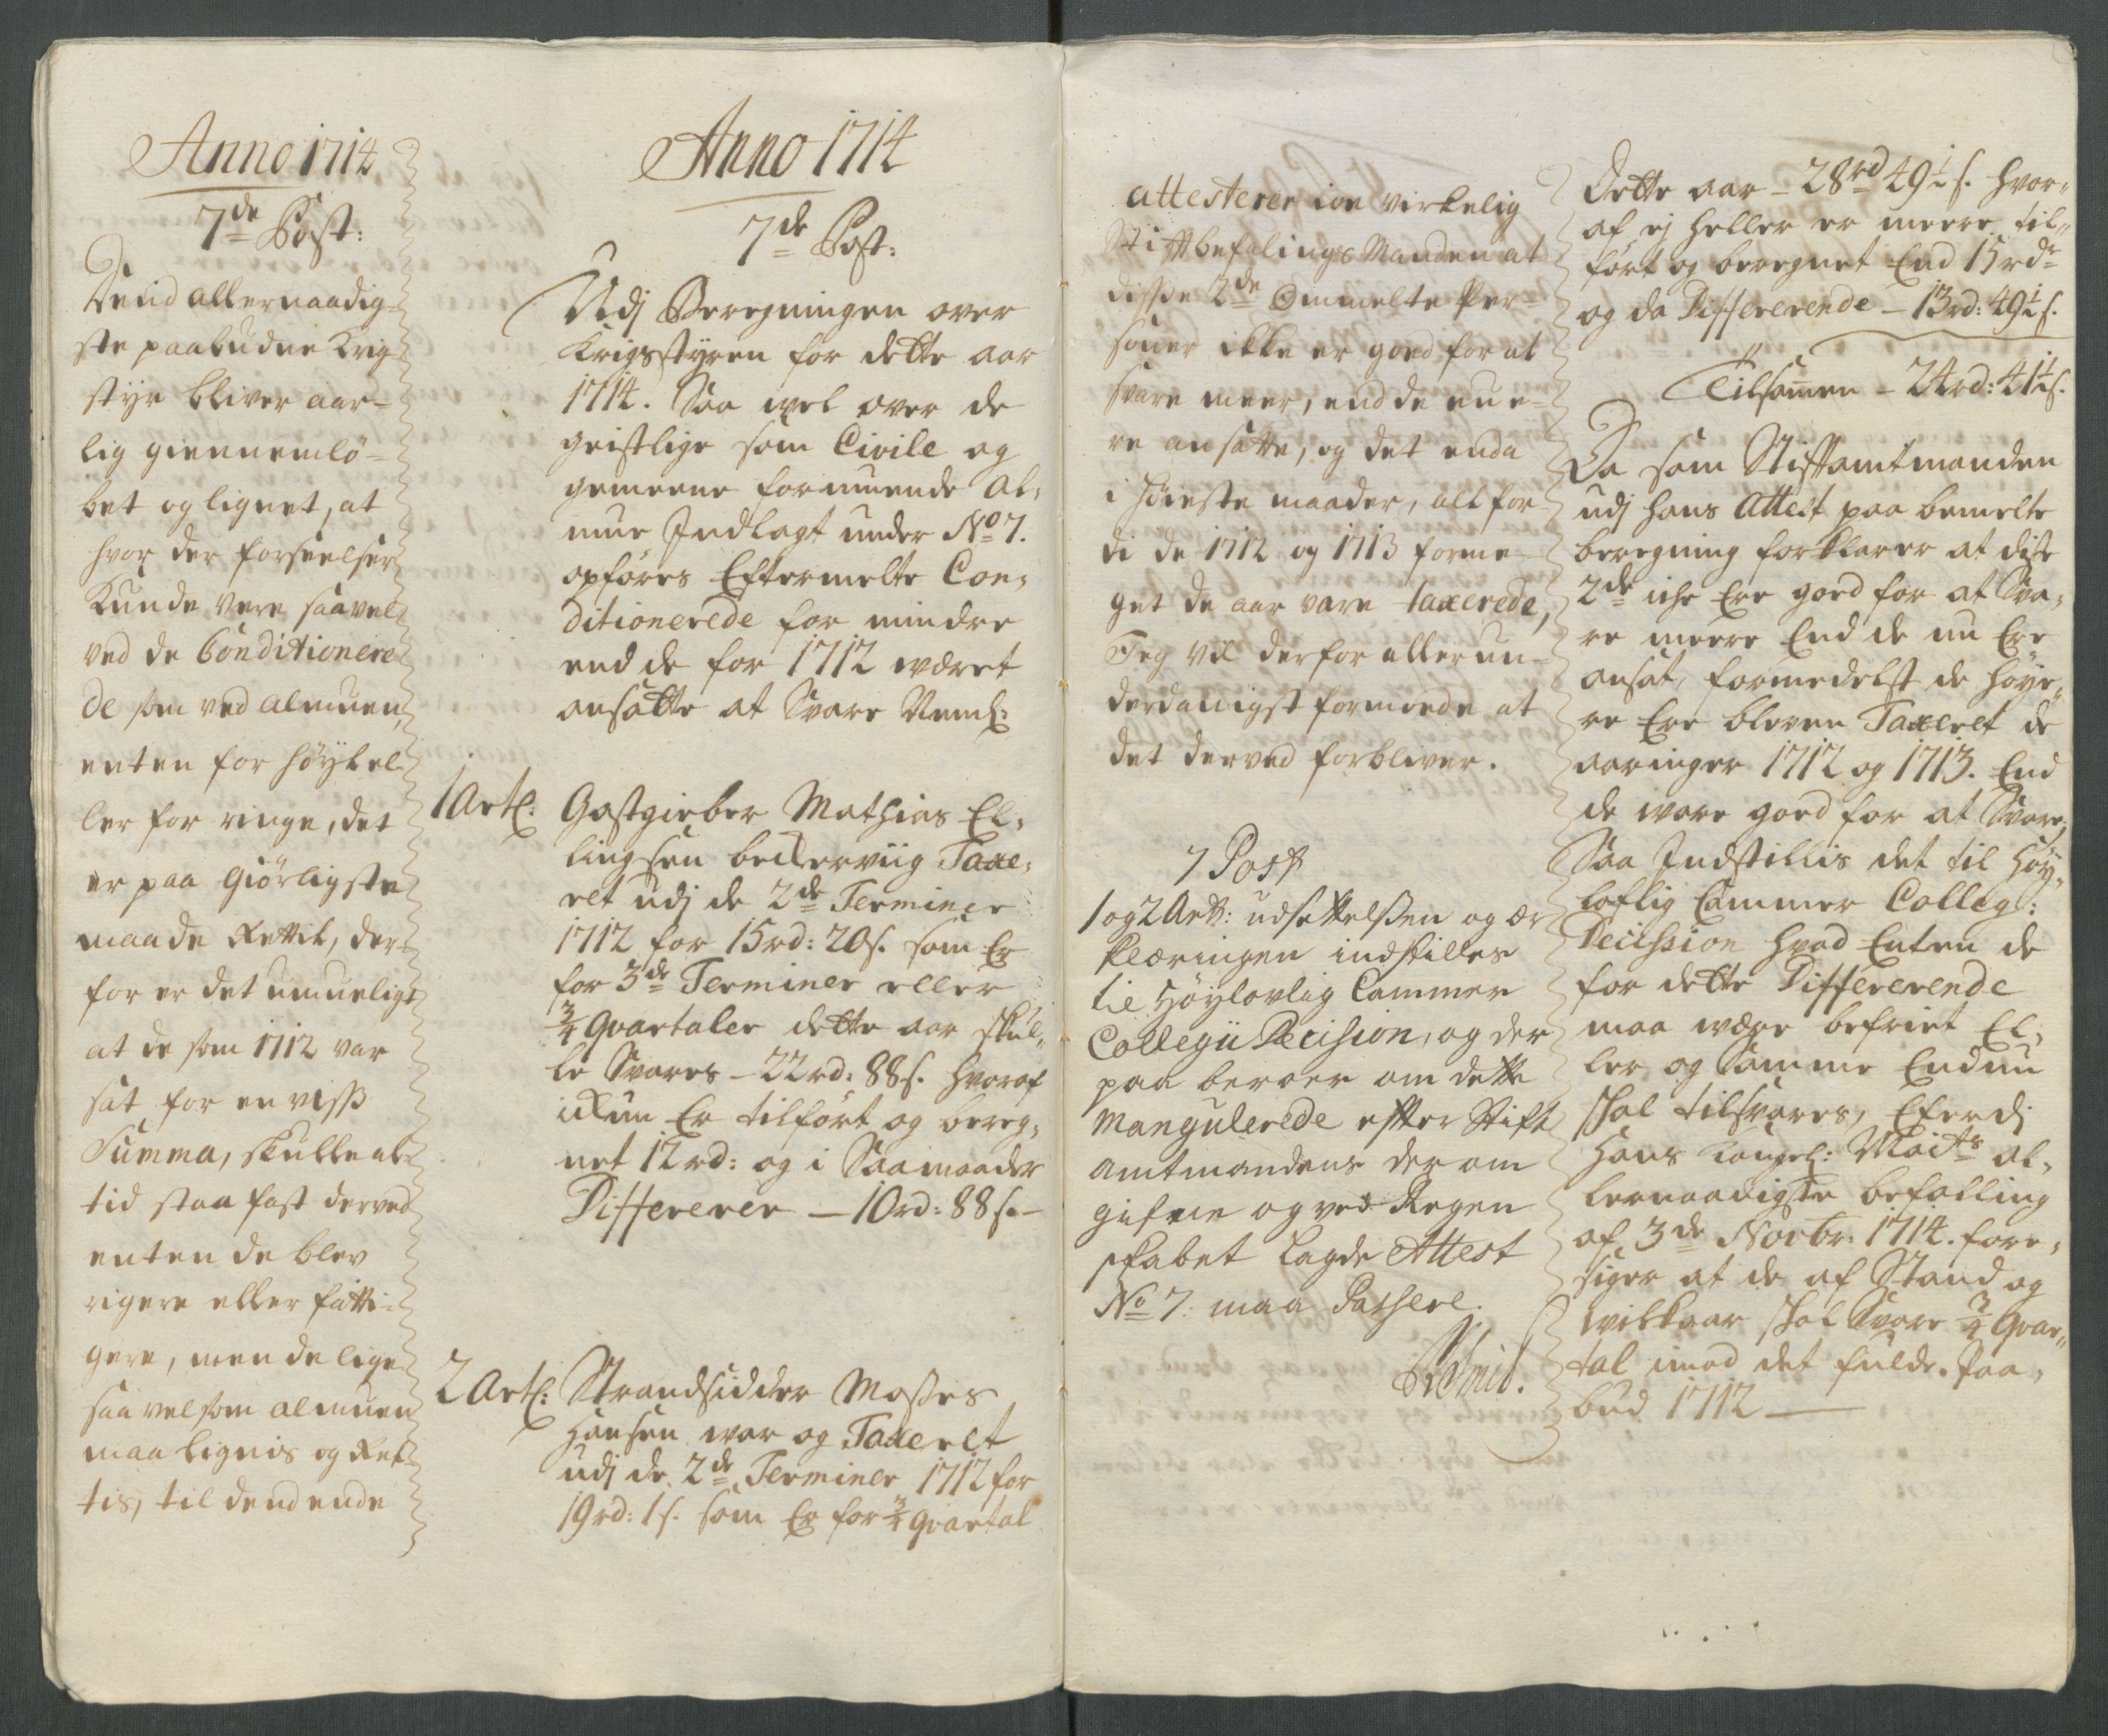 Anno 1714
7de Post:
Dend allernaadig-
ste paabudne Krig
styr bliver aar-
lig giennemlö-
bet og lignet, at
hvor der forseelser
Kunde være saavel
ved de Conditionere
de som ved almuen,
enten for höyt el-
ler for ringe, det
er paa Giörligste
maade Rettit, der-
for er det umueligt
at de som 1712 var
sat for en viss
Summa, skulle al-
tid staa fast derved
enten de blev
rigere eller fatti-
gere, men de lige
saavel som almuen
maa lignis og Ret-
tis, til dend ende
Anno 1714
7de Post:
Udj Beregningen over
Krigsstyren for dette aar
1714. Saa wel over de
geistlige som Civile og
gemeene formuende Al-
mue Indlagt under No 7.
opföres Eftermelte Con-
ditionerede for mindre
end de for 1712 wæret
ansatte at Svare Neml:
1 Artl: Gastgieber Mathias El-
lingsen Taxe-
ret udj de 2de Terminer
1712 for 15rd: 20s. som Er
for 3de Terminer eller
3/4 Qvartaler dette aar skul-
le Svares - 22rd: 88s. hvoraf
ickun Er tilfört og bereg-
net 12rd: og i Saamaader
Differerer - 10rd: 88s. -
2 Artl: Strandsidder Moses
Hansen war og Taxeret
udj de 2de Terminer 1712 for
19rd: 1s. som Er for 3/4 qvartal
attesterer virkelig
Stiftbefalings Manden at
disse 2de Ommelte Per-
soner ikke er goed for at
svare meer, end de nu e-
re ansatte, og det enda
i höieste maader, alt for-
di de 1712 og 1713 forme-
get de aar vare taxerede,
Jeg vil derfor allerun-
derdanigst formode at
det derved forbliver.
7 Post
1 og 2 Art: udsættelsen og er
klæringen indstilles
til Höylovlig Cammer
Collegii Decision, og der
paa beroer om dette
Mangulerede efter Stift
amtmandens derom
gifne og ved Regen
skabet lagde Attest
No 7: maa Passere.
Dette aar - 28rd 49 1/2 s. hvor-
af ej heller er meere til-
fört og beregnet End 15rdr
og da Differerende - 13rd: 49 1/2 s.
Tilsamen - 24rd: 41 1/2 s.
Da som Stiftamtmanden
udj hans Attest paa bemelte
beregning forklarer at dise
2de iche Ere goed for at Sva-
re meere End de nu Ere
ansat, formedelst de höye-
re Ere bleven Taxeret de
aaringer 1712 og 1713. End
de ware goed for at Svare,
Saa Indstillis det til Höy-
loflig Cammer Colleg:
Decission hvad Enten de
for dette Differerende
maa være befriet El-
ler og Samme Endnu
skal tilsvares, Efterdj
Hans Kongel: Maits al-
lernaadigste befalling
af 3de Novbr: 1714. fore-
siger at de af Stand og
wilkaar skal Svare 3/4 Qvar-
tal imod det fulde Paa-
bud 1712